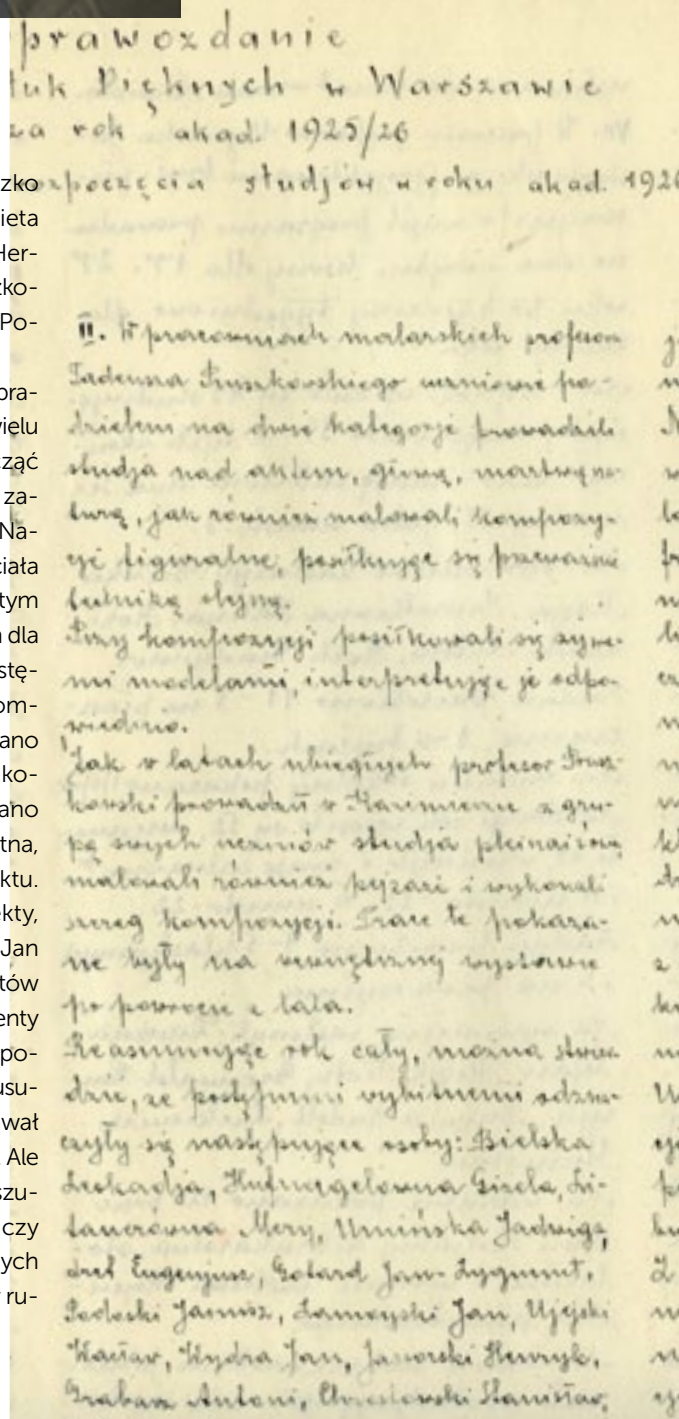 prawozdanie
tuk Pięknych w Warszawie
za rok akad. 1925/26
rozpoczęcia studjów w roku akad. 1926
zko
ieta
Her-
zko-
Po-
pra-
vielu
ząć
za-
Na-
iała
tym
dla
stę-
om-
ano
ko-
ano
tna,
ktu.
kty,
Jan
tów
enty
po-
usu-
wał
Ale
szu-
czy
ych
ru-
II. W pracowniach malarskich profesora
Tadeusza Pruszkowskiego uczniowie po-
dzieleni na dwie kategorje prowadzili
studja nad aktem, głową, martwą na-
turą, jak również malowali kompozy-
cje figuralne, posiłkując się przeważnie
techniką olejną.
Przy kompozycji posiłkowali się żywe-
mi modelami, interpretując je odpo-
wiednio.
Jak w latach ubiegłych profesor Prusz-
kowski prowadził w Kazimierzu z gru-
pą swych uczniów studja pleinairowe
malowali również pejzaże i wykonali
szereg kompozycji. Prace te pokaza-
ne były na wewnętrznej wystawie
po powrocie z lata.
Reasumując rok cały, można stwier-
dzić, że postępami wybitnemi odzna-
czyły się następujące osoby: Bielska
Leokadja, Hufnagelówna Gisela, Li-
tauerówna Mery, Umińska Jadwiga,
Eugenjusz, Gotard Jan-Zygmunt,
Podoski Janusz, Zamoyski Jan, Ujejski
Wacław, Wydra Jan, Jaworski Henryk,
Grabarz Antoni, Chrostowski Stanisław,